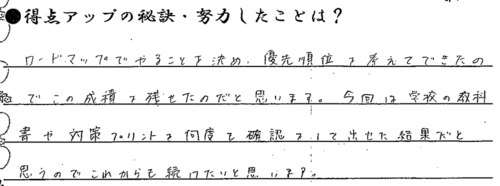 ●得点アップの秘訣・努力したことは？
ロードマップでやることを決め、優先順位を考えてできたの
でこの成績を残せたのだと思います。今回は学校の教科
書や対策プリントを何度も確認をして出せた結果だと
思うのでこれからも続けたいと思います。